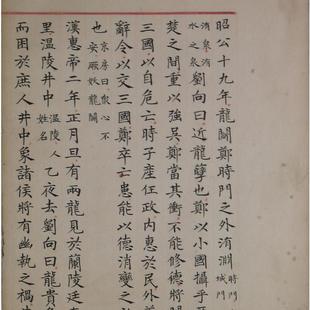 昭公十九年龍鬬鄭時門之外洧淵時門城門
洧泉洧水之泉劉向曰近龍孽也鄭以小國攝乎
楚之間重以強吳鄭當其衝不能修德將鬬
三國以自危亡時子產任政内惠於民外
辭令以交三國鄭卒亡患能以德消變之
也京房曰衆心不安厥妖龍鬬
漢惠帝二年正月旦有兩龍見於蘭陵廷
里溫陵井中溫陵人姓名乙夜去劉向曰龍貴
而困於庶人井中象諸侯將有幽執之禍